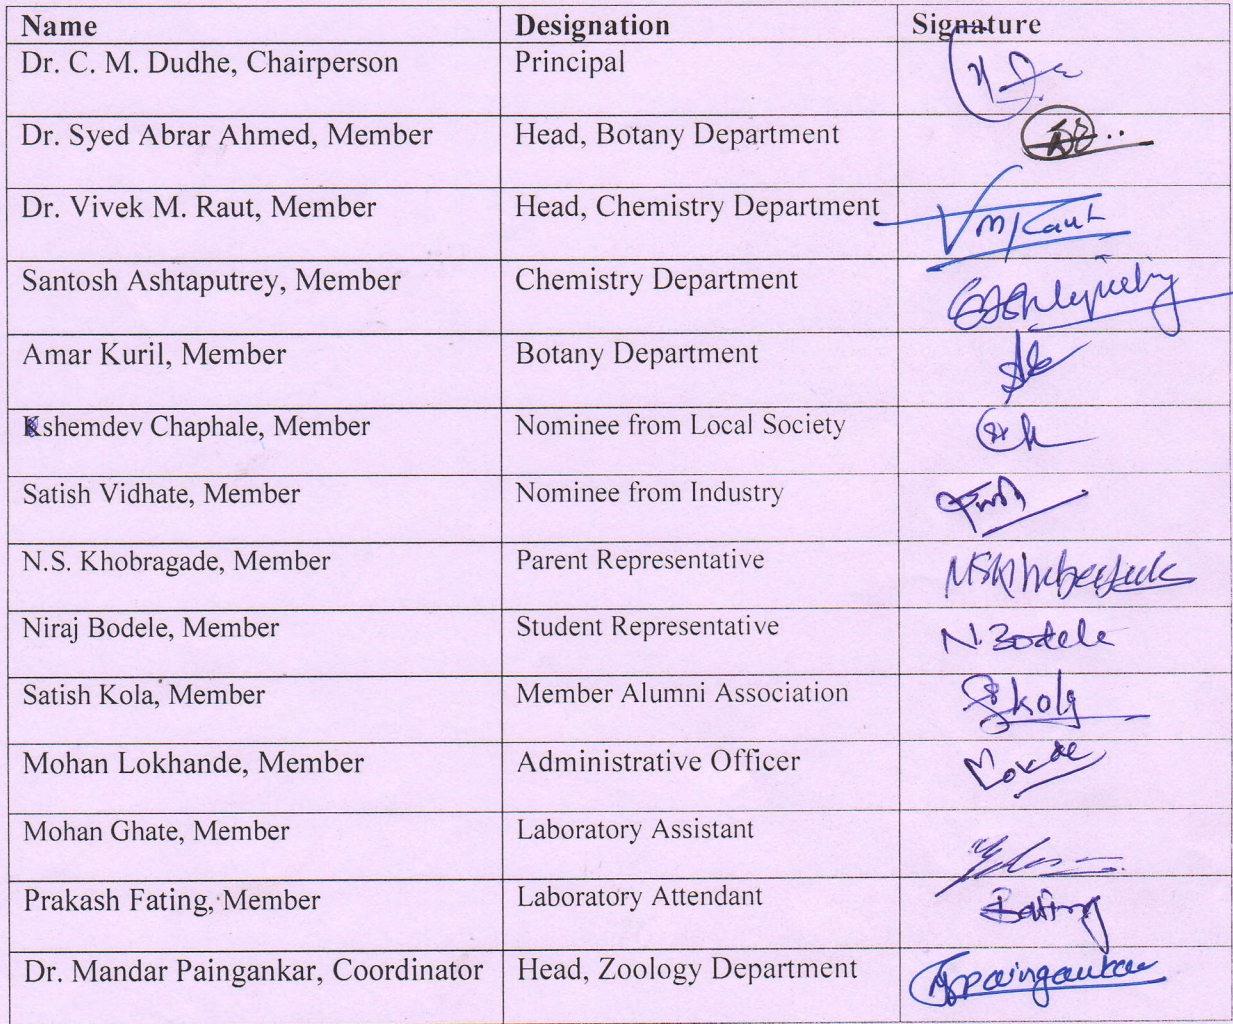 Name Designation Signature
Dr. C. M. Dudhe, Chairperson Principal
Dr. Syed Abrar Ahmed, Member Head, Botany Department
Dr. Vivek M. Raut, Member Head, Chemistry Department VMRaut
Santosh Ashtaputrey, Member Chemistry Department
Amar Kuril, Member Botany Department
Kshemdev Chaphale, Member Nominee from Local Society
Satish Vidhate, Member Nominee from Industry
N.S. Khobragade, Member Parent Representative
Niraj Bodele, Member Student Representative N.Bodele
Satish Kola, Member Member Alumni Association Skola
Mohan Lokhande, Member Administrative Officer
Mohan Ghate, Member Laboratory Assistant
Prakash Fating, Member Laboratory Attendant
Dr. Mandar Paingankar, Coordinator Head, Zoology Department Mpaingankar